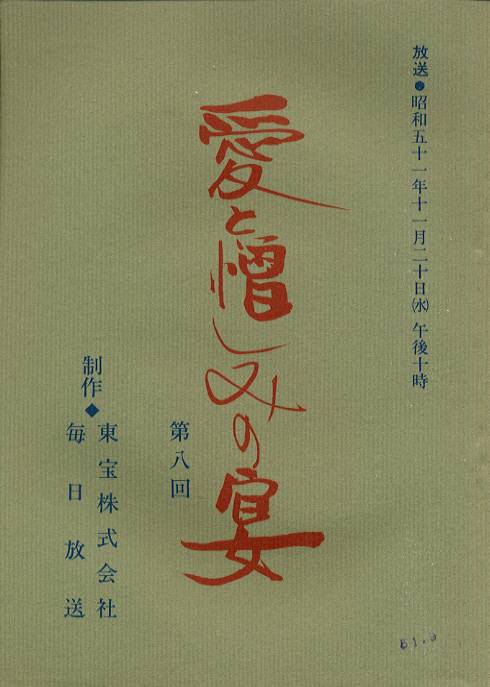 放送●昭和五十一年十一月二十日(水)午後十時
愛と憎しみの宴
第八回
制作◆東宝株式会社
毎日放送